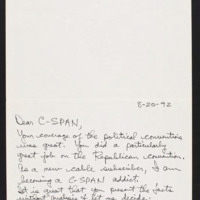 8-20-92
Dear C-SPAN,
Your coverage of the political conventions
was great. You did a particularly
great job on the Republican convention.
As a new cable subscriber, I am
becoming a C-SPAN addict.
It is great that you present the facts
without analysis & let me decide.